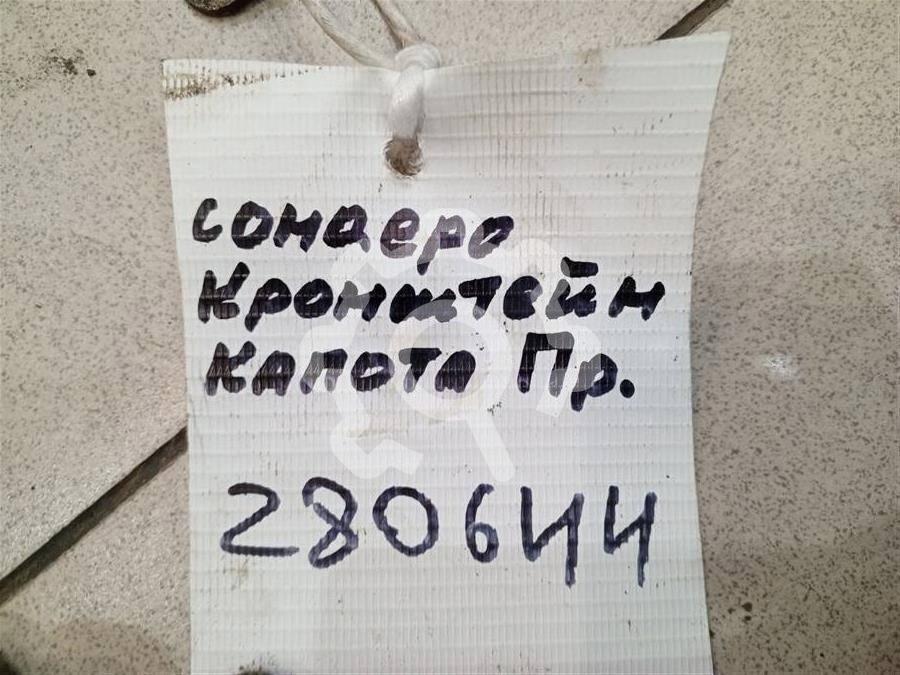 сондеро
Кронштейн
Капота Пр.
280644